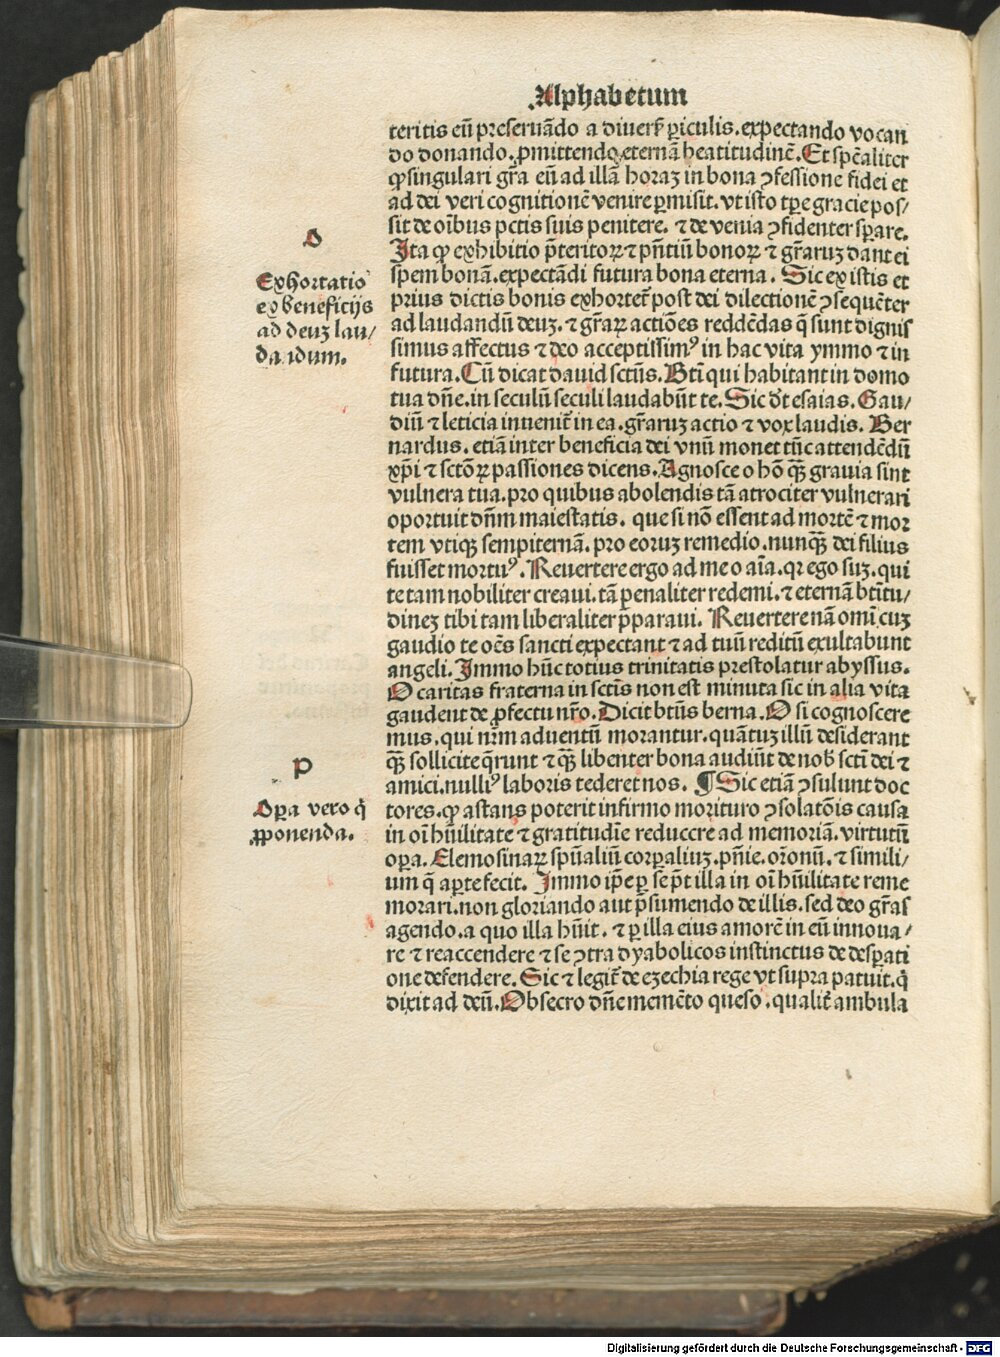 Alphabetum
teritis eū preseruādo a diuers̄ ꝑiculis. expectando vocan
do donando. ꝓmittendo eternā beatitudinē. Et spēaliter
ꝙ singulari gr̄a eū ad illā horaꝫ in bona ꝯfessione fidei et
ad dei veri cognitionē venire ꝑmisit. vt isto tꝑe gracie pos/
sit de oībus pctis suis penitere. ⁊ de venia ꝯfidenter sꝑare.
Ita ꝙ exhibitio p̄teritoꝝ ⁊ pn̄tiū bonoꝝ ⁊ gr̄aruꝫ dant ei
spem bonā. expectādi futura bona eterna. Sic ex istis et
prius dictis bonis exhortet̄ post dei dilectionē ꝯsequēter
ad laudandū deuꝫ. ⁊ gr̄aꝝ actiōes reddēdas q̄ sunt dignis
simus affectus ⁊ deo acceptissimꝰ in hac vita ymmo ⁊ in
futura. Cū dicat dauid sctūs. Bt̄i qui habitant in domo
tua dn̄e. in seculū seculi laudabūt te. Sic d̄t esaias. Gau/
diū ⁊ leticia inuenit̄ in ea. gr̄aruꝫ actio ⁊ vox laudis. Ber
nardus. etiā inter beneficia dei vnū monet tūc attendēdū
xp̄i ⁊ sctōꝝ passiones dicens. Agnosce o hō qꝫ̄ grauia sint
vulnera tua. pro quibus abolendis tā atrociter vulnerari
oportuit dn̄m maiestatis. que si nō essent ad mortē ⁊ mor
tem vtiqꝫ sempiternā. pro eoruꝫ remedio. nunqꝫ̄ dei filius
fuisset mortuꝰ. Reuertere ergo ad me o aīa. qr ego suꝫ. qui
te tam nobiliter creaui. tā penaliter redemi. ⁊ eternā bt̄itu/
dineꝫ tibi tam liberaliter p̄paraui. Reuertere nā omī cuꝫ
gaudio te oēs sancti expectant ⁊ ad tuū reditū exultabunt
angeli. Immo hūc totius trinitatis prestolatur abyssus.
O caritas fraterna in sctīs non est minuta sic in alia vita
gaudent de ꝓfectu nr̄o. Dicit bt̄us berna. O si cognoscere
mus. qui nr̄m aduentū morantur. quātuꝫ illū desiderant
qꝫ̄ sollicite q̄runt ⁊ qꝫ̄ libenter bona audiūt de nob̄ sctī dei ⁊
amici. nulliꝰ laboris tederet nos. ¶ Sic etiā ꝯsulunt doc
tores. ꝙ astans poterit infirmo morituro ꝯsolatōis causa
in oī hūilitate ⁊ gratitudīe reducere ad memoriā. virtutū
oꝑa. Elemosinaꝝ spūaliū corꝑaliuꝫ. pn̄ie. or̄onū. ⁊ simili/
um q̄ aꝑte fecit. Immo ip̄e ꝑ se p̄t illa in oī hūilitate reme
morari. non gloriando aut p̄sumendo de illis. sed deo gr̄as
agendo. a quo illa hūit. ⁊ ꝑ illa eius amorē in eū innoua/
re ⁊ reaccendere ⁊ se ꝯtra dyabolicos instinctus de desꝑati
one defendere. Sic ⁊ legit̄ de ezechia rege vt supra patuit. q̄
dixit ad deū. Obsecro dn̄e memēto queso. qualit̄ ambula
O
Exhortatio
ex beneficijs
ad deuꝫ lau/
dandum.
P
Oꝑa vero q̄
ꝓponenda.
Digitalisierung gefördert durch die Deutsche Forschungsgemeinschaft - DFG